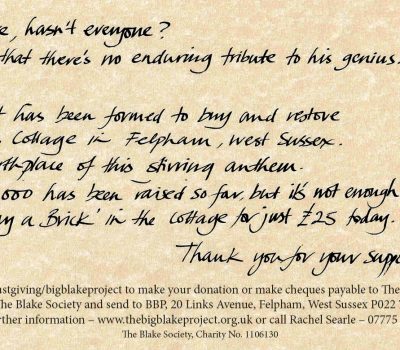 hasn't everyone?
that there's no enduring tribute to his genius.
has been formed to buy and restore
Cottage in Felpham, West Sussex.
of this stirring anthem.
000 has been raised so far, but it's not enough
a Brick' in the Cottage for just £25 today.
Thank you for your
to make your donation or make cheques payable to The
The Blake Society and send to BBP, 20 Links Avenue, Felpham, West Sussex PO22 7
information – www.thebigblakeproject.org.uk or call Rachel Searle – 07775
The Blake Society, Charity No. 1106130